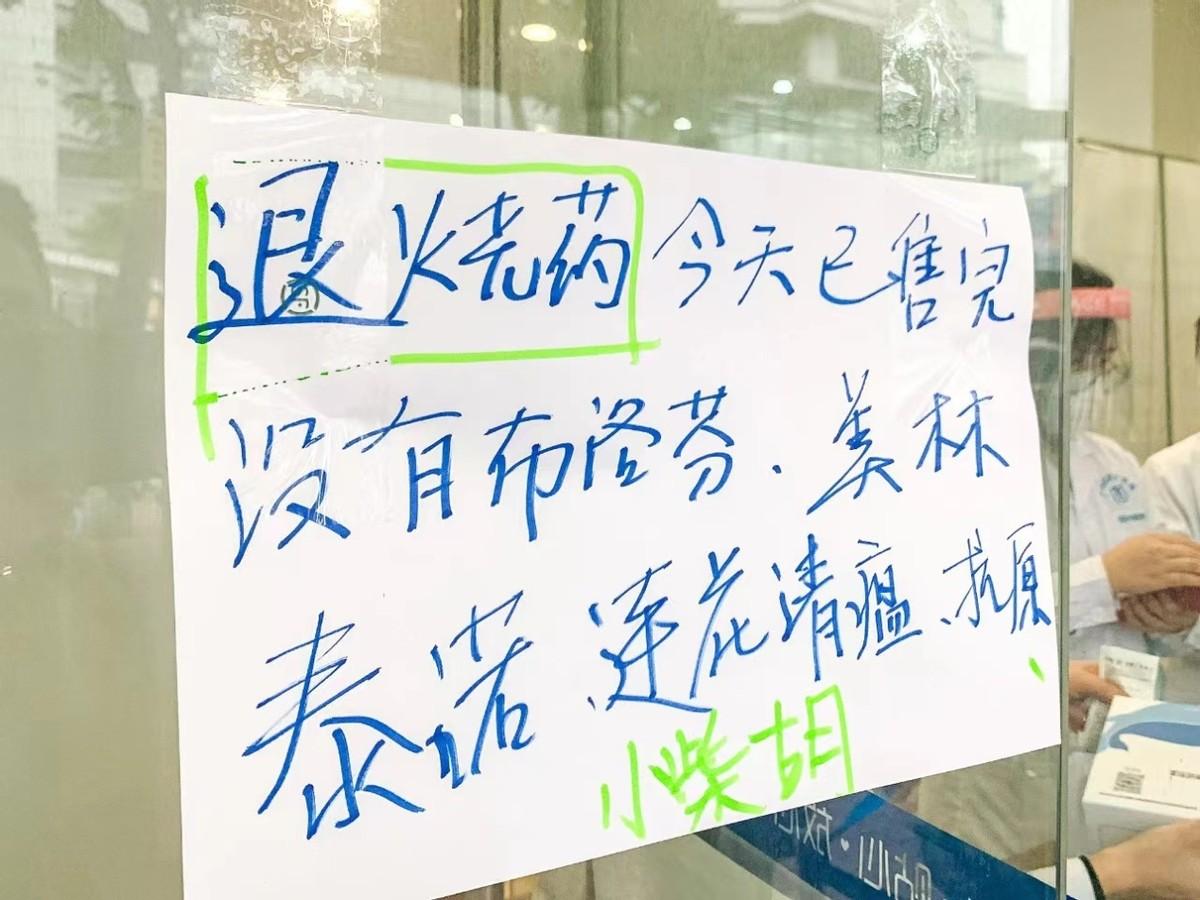 退烧药今天已售完
没有布洛芬.美林
泰诺.莲花清瘟、抗原、
小柴胡